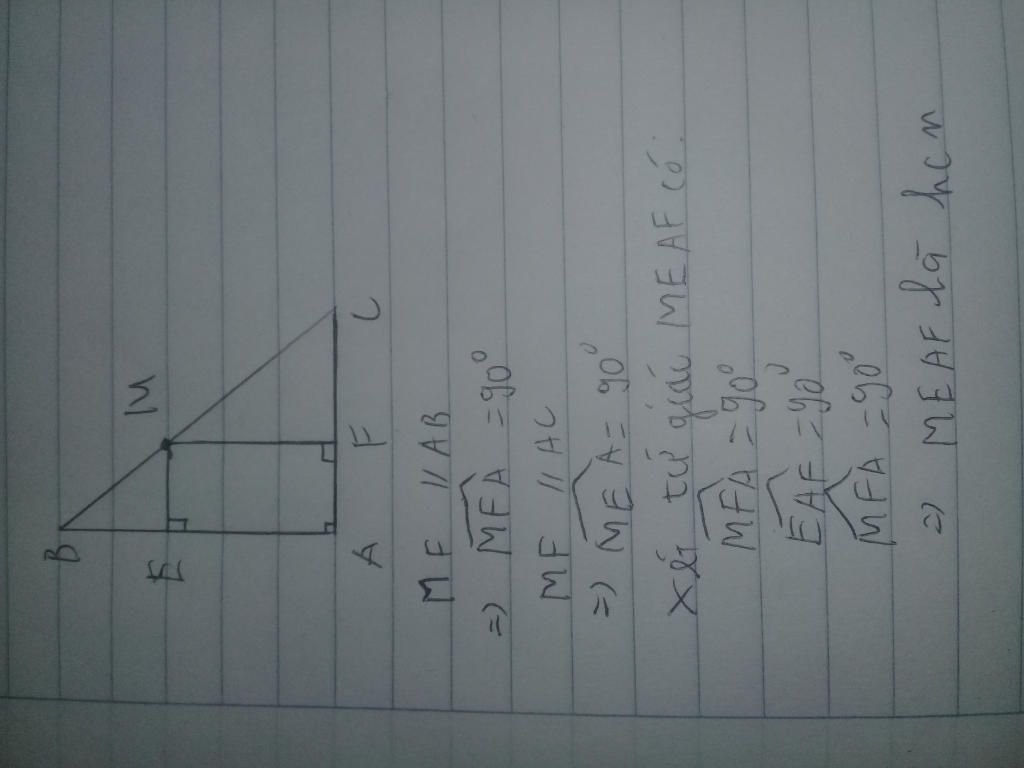 B
E M
A F C
MF // AB
=> MFA = 90°
MF // AC
=> MEA = 90°
Xét tứ giác MEAF có:
MFA = 90°
EAF = 90°
MFA = 90°
=> MEAF là hcn